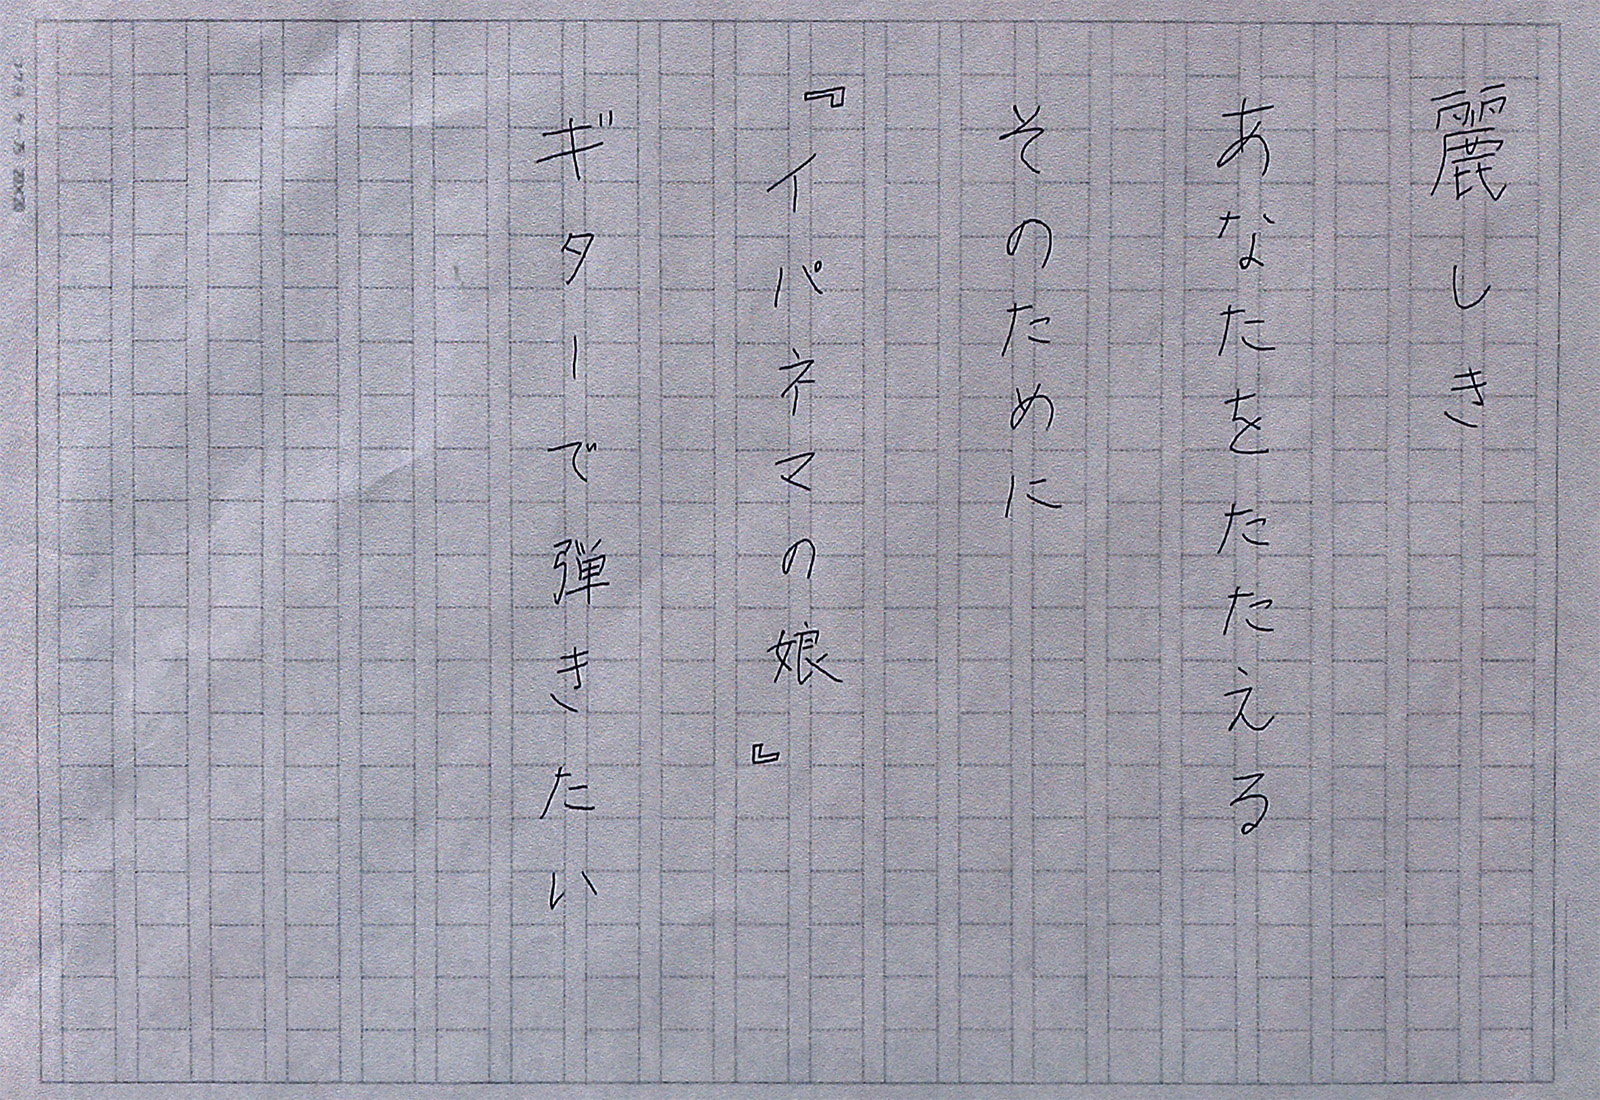 麗しき
あなたをたたえる
そのために
『イパネマの娘』
ギターで弾きたい